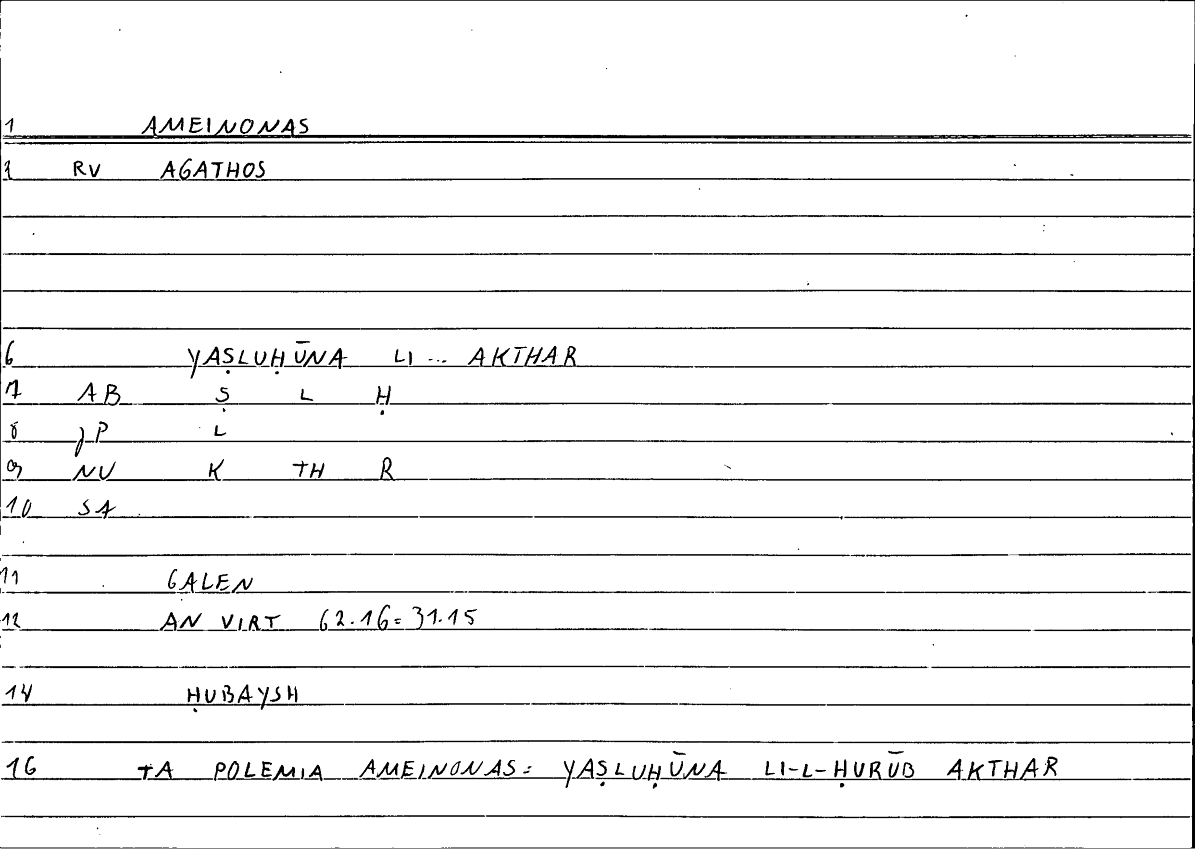 1 AMEINONAS
1 RV AGATHOS
6 YAṢLUḤŪNA LI ... AKTHAR
7 AB Ṣ L Ḥ
8 JP L
9 NV K TH R
10 SA
11 GALEN
12 AN VIRT 62.16=31.15
14 ḤUBAYSH
16 TA POLEMIA AMEINONAS: YAṢLUḤŪNA LI-L-ḤURŪB AKTHAR